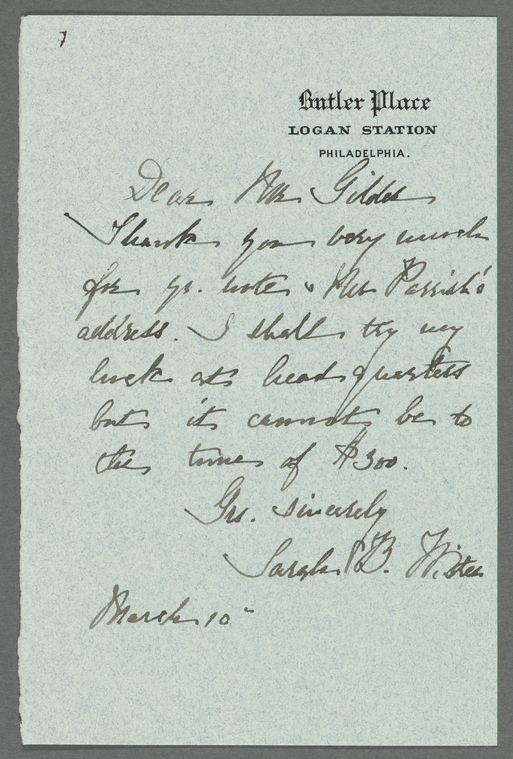 Butler Place
LOGAN STATION
PHILADELPHIA.
Dear Mr Gilder
Thank you very much
for yr. note & Mr Parrish's
address. I shall try my
luck at head quarters
but it cannot be to
the tune of $300.
Yrs. sincerely
Sarah B. Wister
March 10